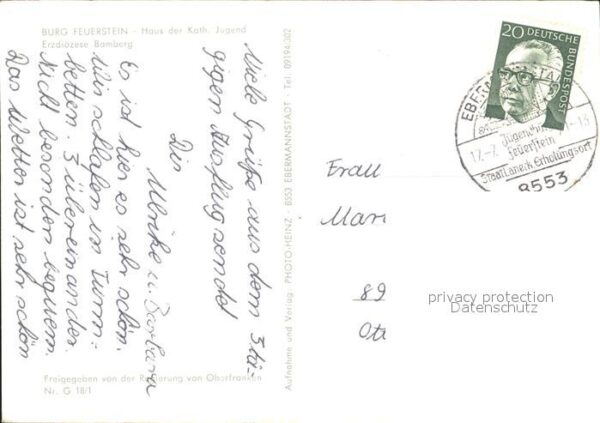 BURG FEUERSTEIN - Haus der Kath. Jugend
Erzdiözese Bamberg
Viele Grüße aus dem 3tä-
gigen Ausflug sendet
Dir
Ulrike u. Barbara
Es ist hier es sehr schön.
Wir schlafen in Turm-
betten. 3 übereinander.
Nicht besonders bequem.
Das Wetter ist sehr schön
Freigegeben von der Regierung von Oberfranken
Nr. G 18/1
Aufnahme und Verlag PHOTO-HEINZ - 8553 EBERMANNSTADT - Tel. 09194/302
20 DEUTSCHE
BUNDESPOST
EBERMANNSTADT
17.-7.
Jugendh
Feuerstein
Staatl. anerk. Erholungsort
8553
Frau
Mari
89
Ott
privacy protection
Datenschutz